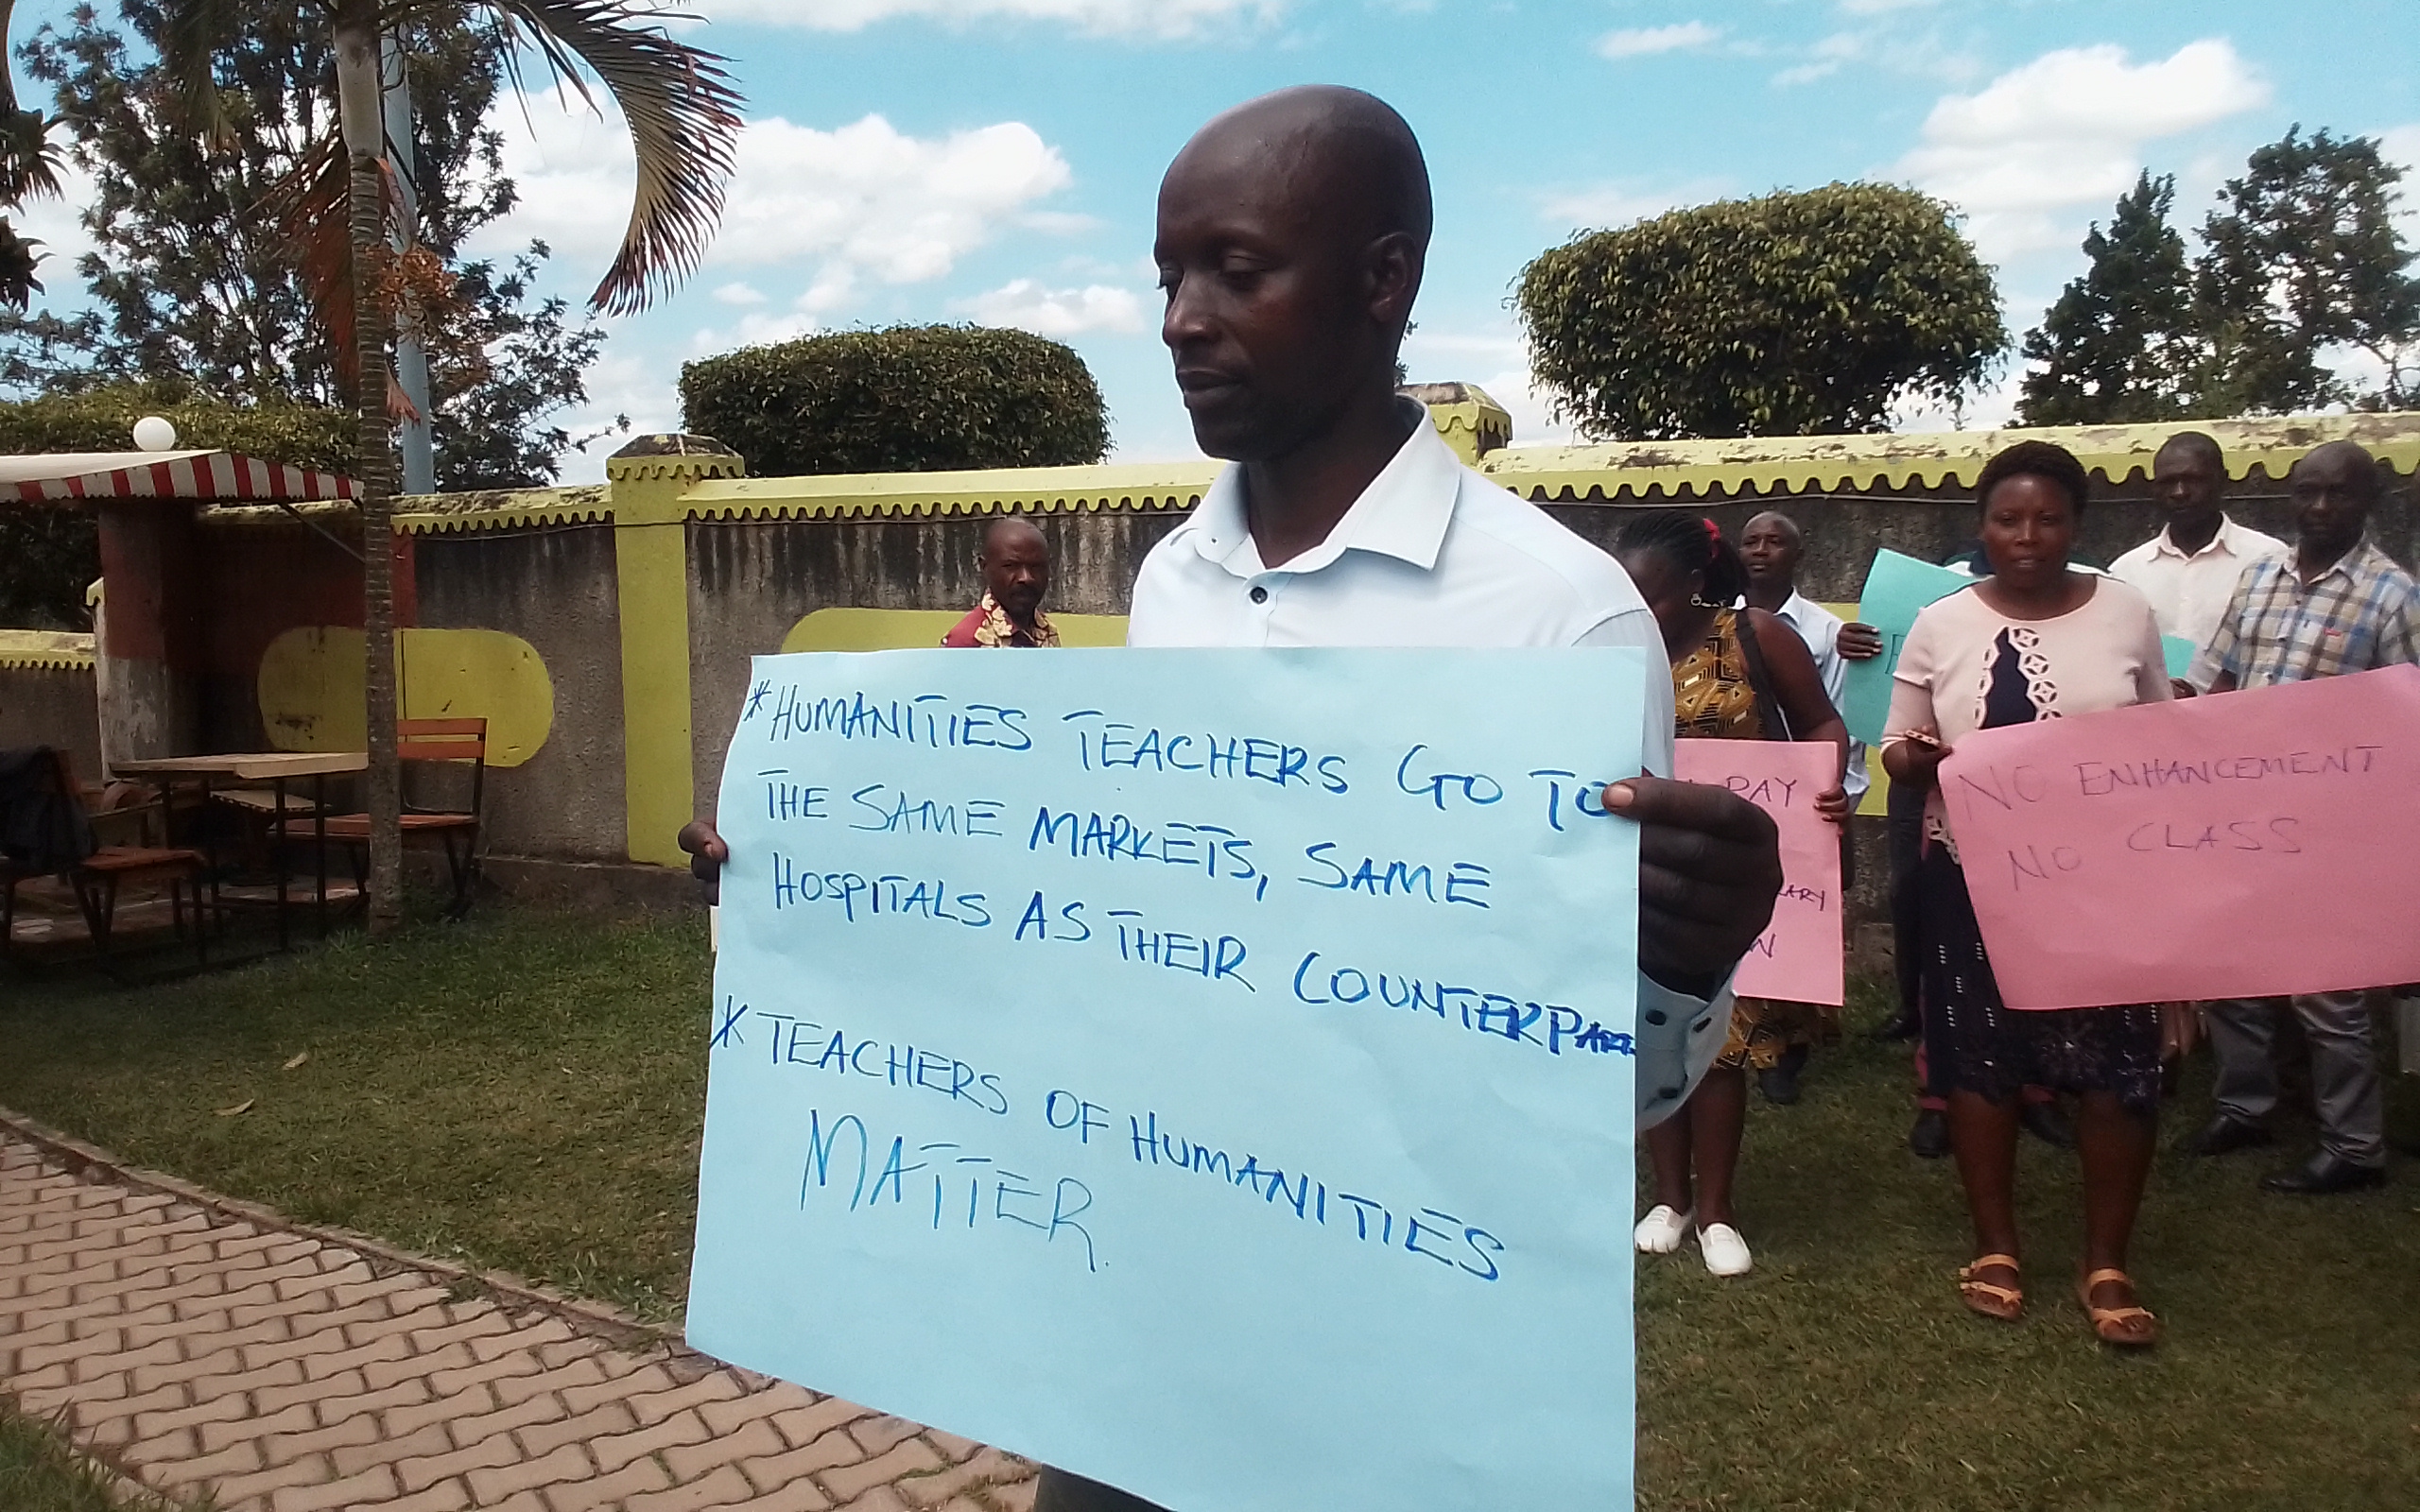 *HUMANITIES TEACHERS GO TO
THE SAME MARKETS, SAME
HOSPITALS AS THEIR COUNTERPARTS
* TEACHERS OF HUMANITIES
MATTER.
PAY
NO ENHANCEMENT
NO CLASS